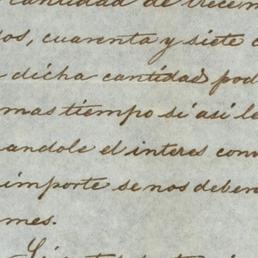 cantidad de trece m
os, cuarenta y siete c
dicha cantidad pod
mas tiempo si asi le
andole el interes conv
importe se nos deben
mes.